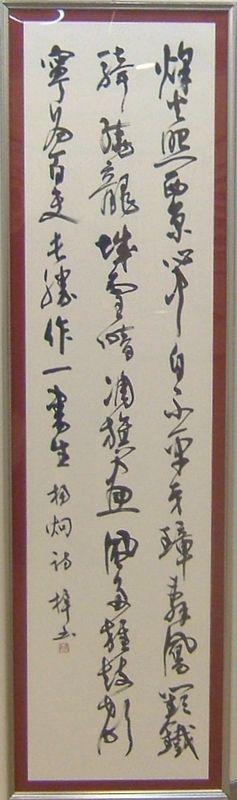 烽火照西京心中自不平牙璋辭鳳闕鐵
騎繞龍城雪暗凋旗畫風多雜鼓聲
寧為百夫長勝作一書生 楊炯詩